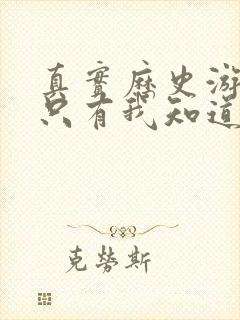 真實歷史游
只有我知道
克勞斯